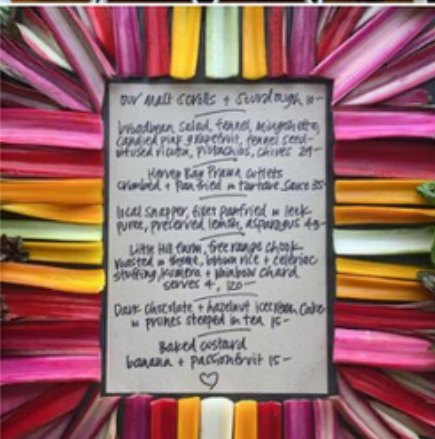 our malt scrolls + sourdough 10-
broadbean salad, fennel, mignonette,
candied pink grapefruit, fennel seed-
infused ricotta, pistachios, chives 29-
Hervey Bay Prawn cutlets
crumbed + Pan fried w tartare sauce 35
local snapper, fillet panfried w leek
puree, preserved lemon, asparagus 43-
Little Hill farm, free range chook
roasted w thyme, brown rice + celeriac
stuffing, kumera + rainbow chard
serves 4, 120-
Dark chocolate + hazelnut ice cream cake
w prunes steeped in tea 15-
Baked custard
banana + passionfruit 15-